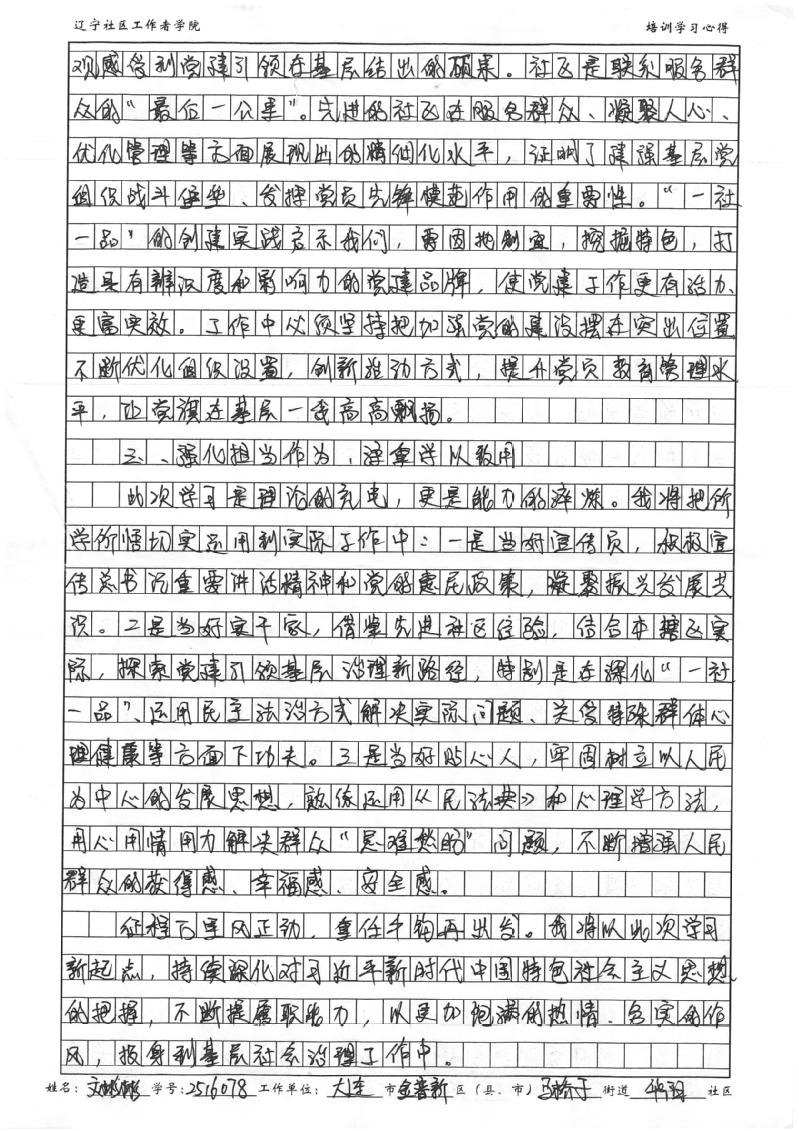 辽宁社区工作者学院 培训学习心得
观感受到党建引领在基层结出的硕果。社区是联系服务群
众的“最后一公里”。先进的社区在服务群众、凝聚人心、
优化管理等方面展现出的精细化水平，证明了建强基层党
组织战斗堡垒、发挥党员先锋模范作用的重要性。“一社
一品”的创建实践启示我们，需因地制宜，挖掘特色，打
造具有辨识度和影响力的党建品牌，使党建工作更有活力、
更富实效。工作中必须坚持把加强党的建设摆在突出位置
不断优化组织设置，创新活动方式，提升党员教育管理水
平，让党旗在基层一线高高飘扬。
三、强化担当作为，注重学以致用
此次学习是理论的充电，更是能力的淬炼。我将把所
学所悟切实运用到实际工作中：一是当好宣传员，积极宣
传总书记重要讲话精神和党的惠民政策，凝聚振兴发展共
识。二是当好实干家，借鉴先进社区经验，结合本辖区实
际，探索党建引领基层治理新路径，特别是在深化“一社
一品”、运用民主法治方式解决实际问题、关爱特殊群体心
理健康等方面下功夫。三是当好贴心人，牢固树立以人民
为中心的发展思想，熟练运用《民法典》和心理学方法，
用心用情用力解决群众“急难愁盼”问题，不断增强人民
群众的获得感、幸福感、安全感。
征程万里风正劲，重任千钧再出发。我将以此次学习
新起点，持续深化对习近平新时代中国特色社会主义思想
的把握，不断提履职能力，以更加饱满的热情、务实的作
风，投身到基层社会治理工作中。
姓名： 学号：2516078 工作单位： 大连 市 金普新 区（县、市） 马桥子 街道 社区